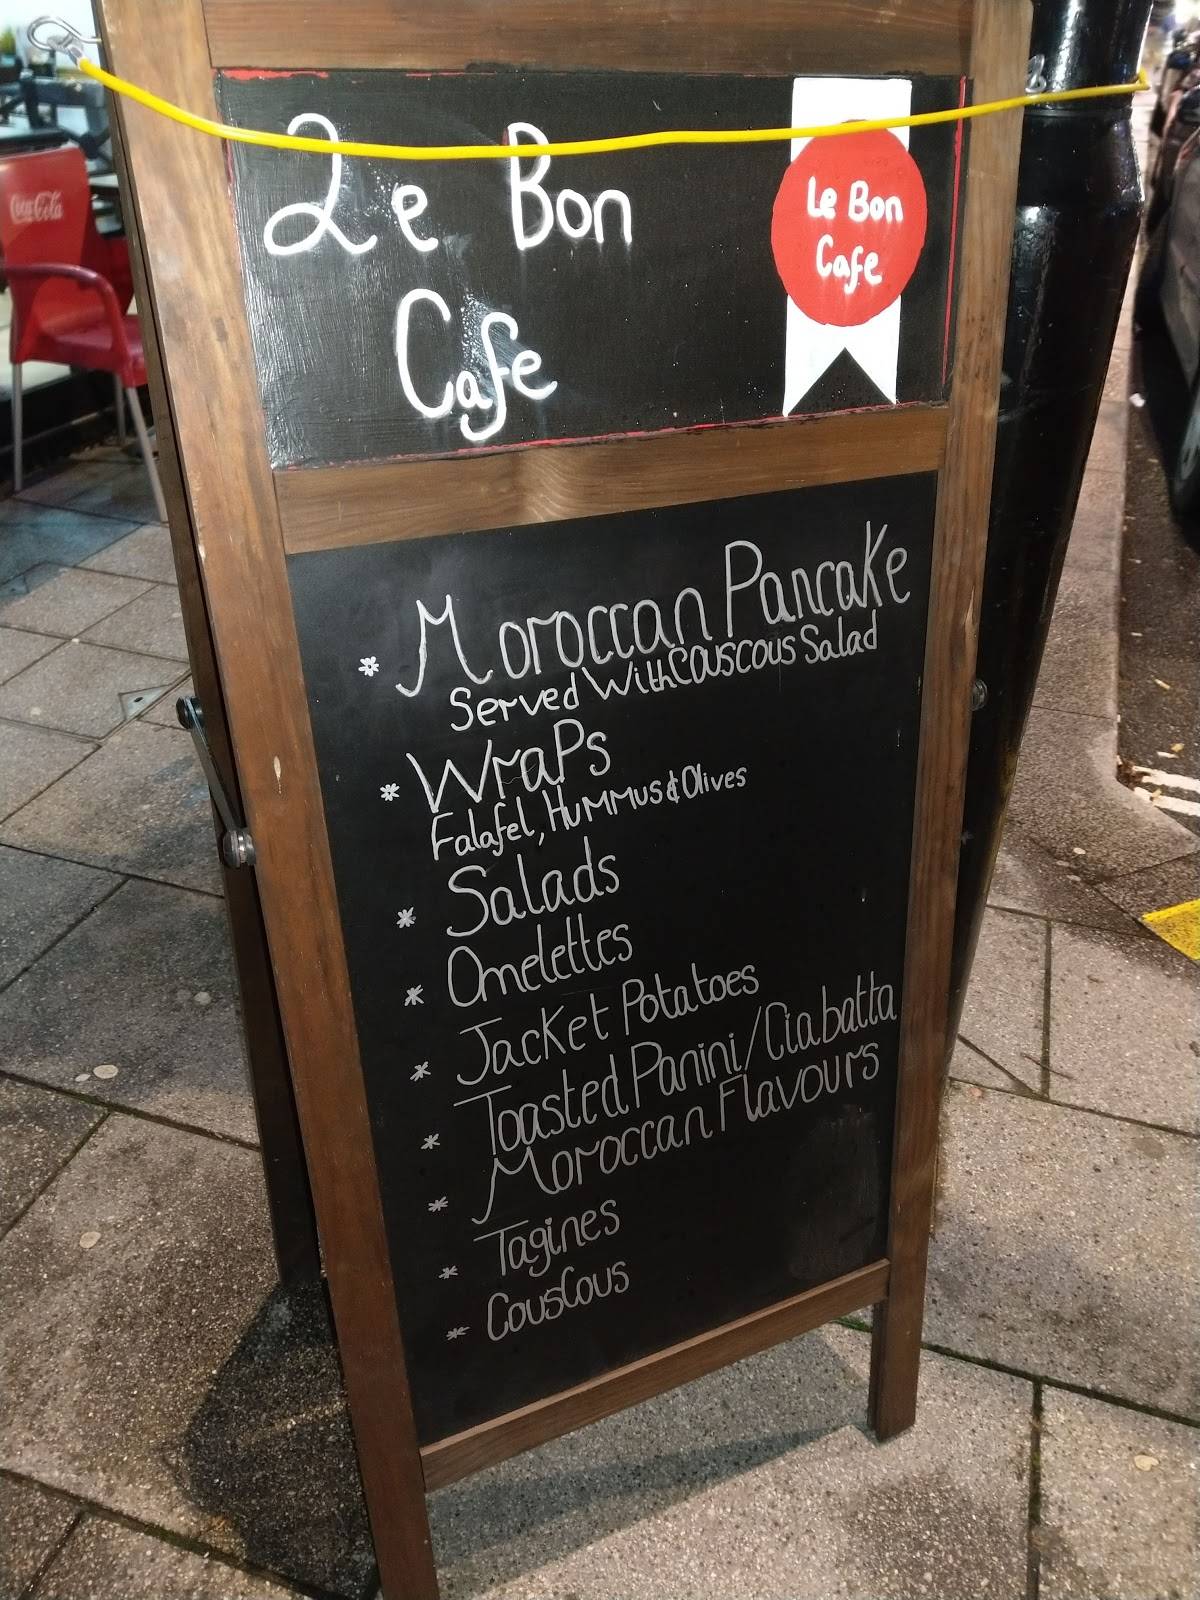 Coca-Cola
Le Bon
Cafe
Le Bon
Cafe
* Moroccan Pancake
Served With Couscous Salad
* Wraps
Falafel, Hummus & Olives
* Salads
* Omelettes
* Jacket Potatoes
* Toasted Panini/Ciabatta
* Moroccan Flavours
* Tagines
* Couscous